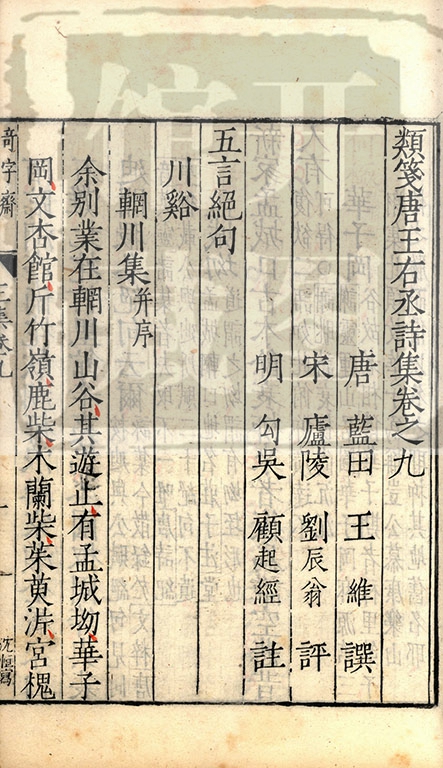 類箋唐王右丞詩集卷之九
唐 藍田 王維 譔
宋 廬陵 劉辰翁 評
明 勾吳 顧起經 註
五言絕句
川谿
輞川集并序
余別業在輞川山谷其遊止有孟城坳華子
岡文杏館斤竹嶺鹿柴木蘭柴茱萸沜宮槐
奇字齋